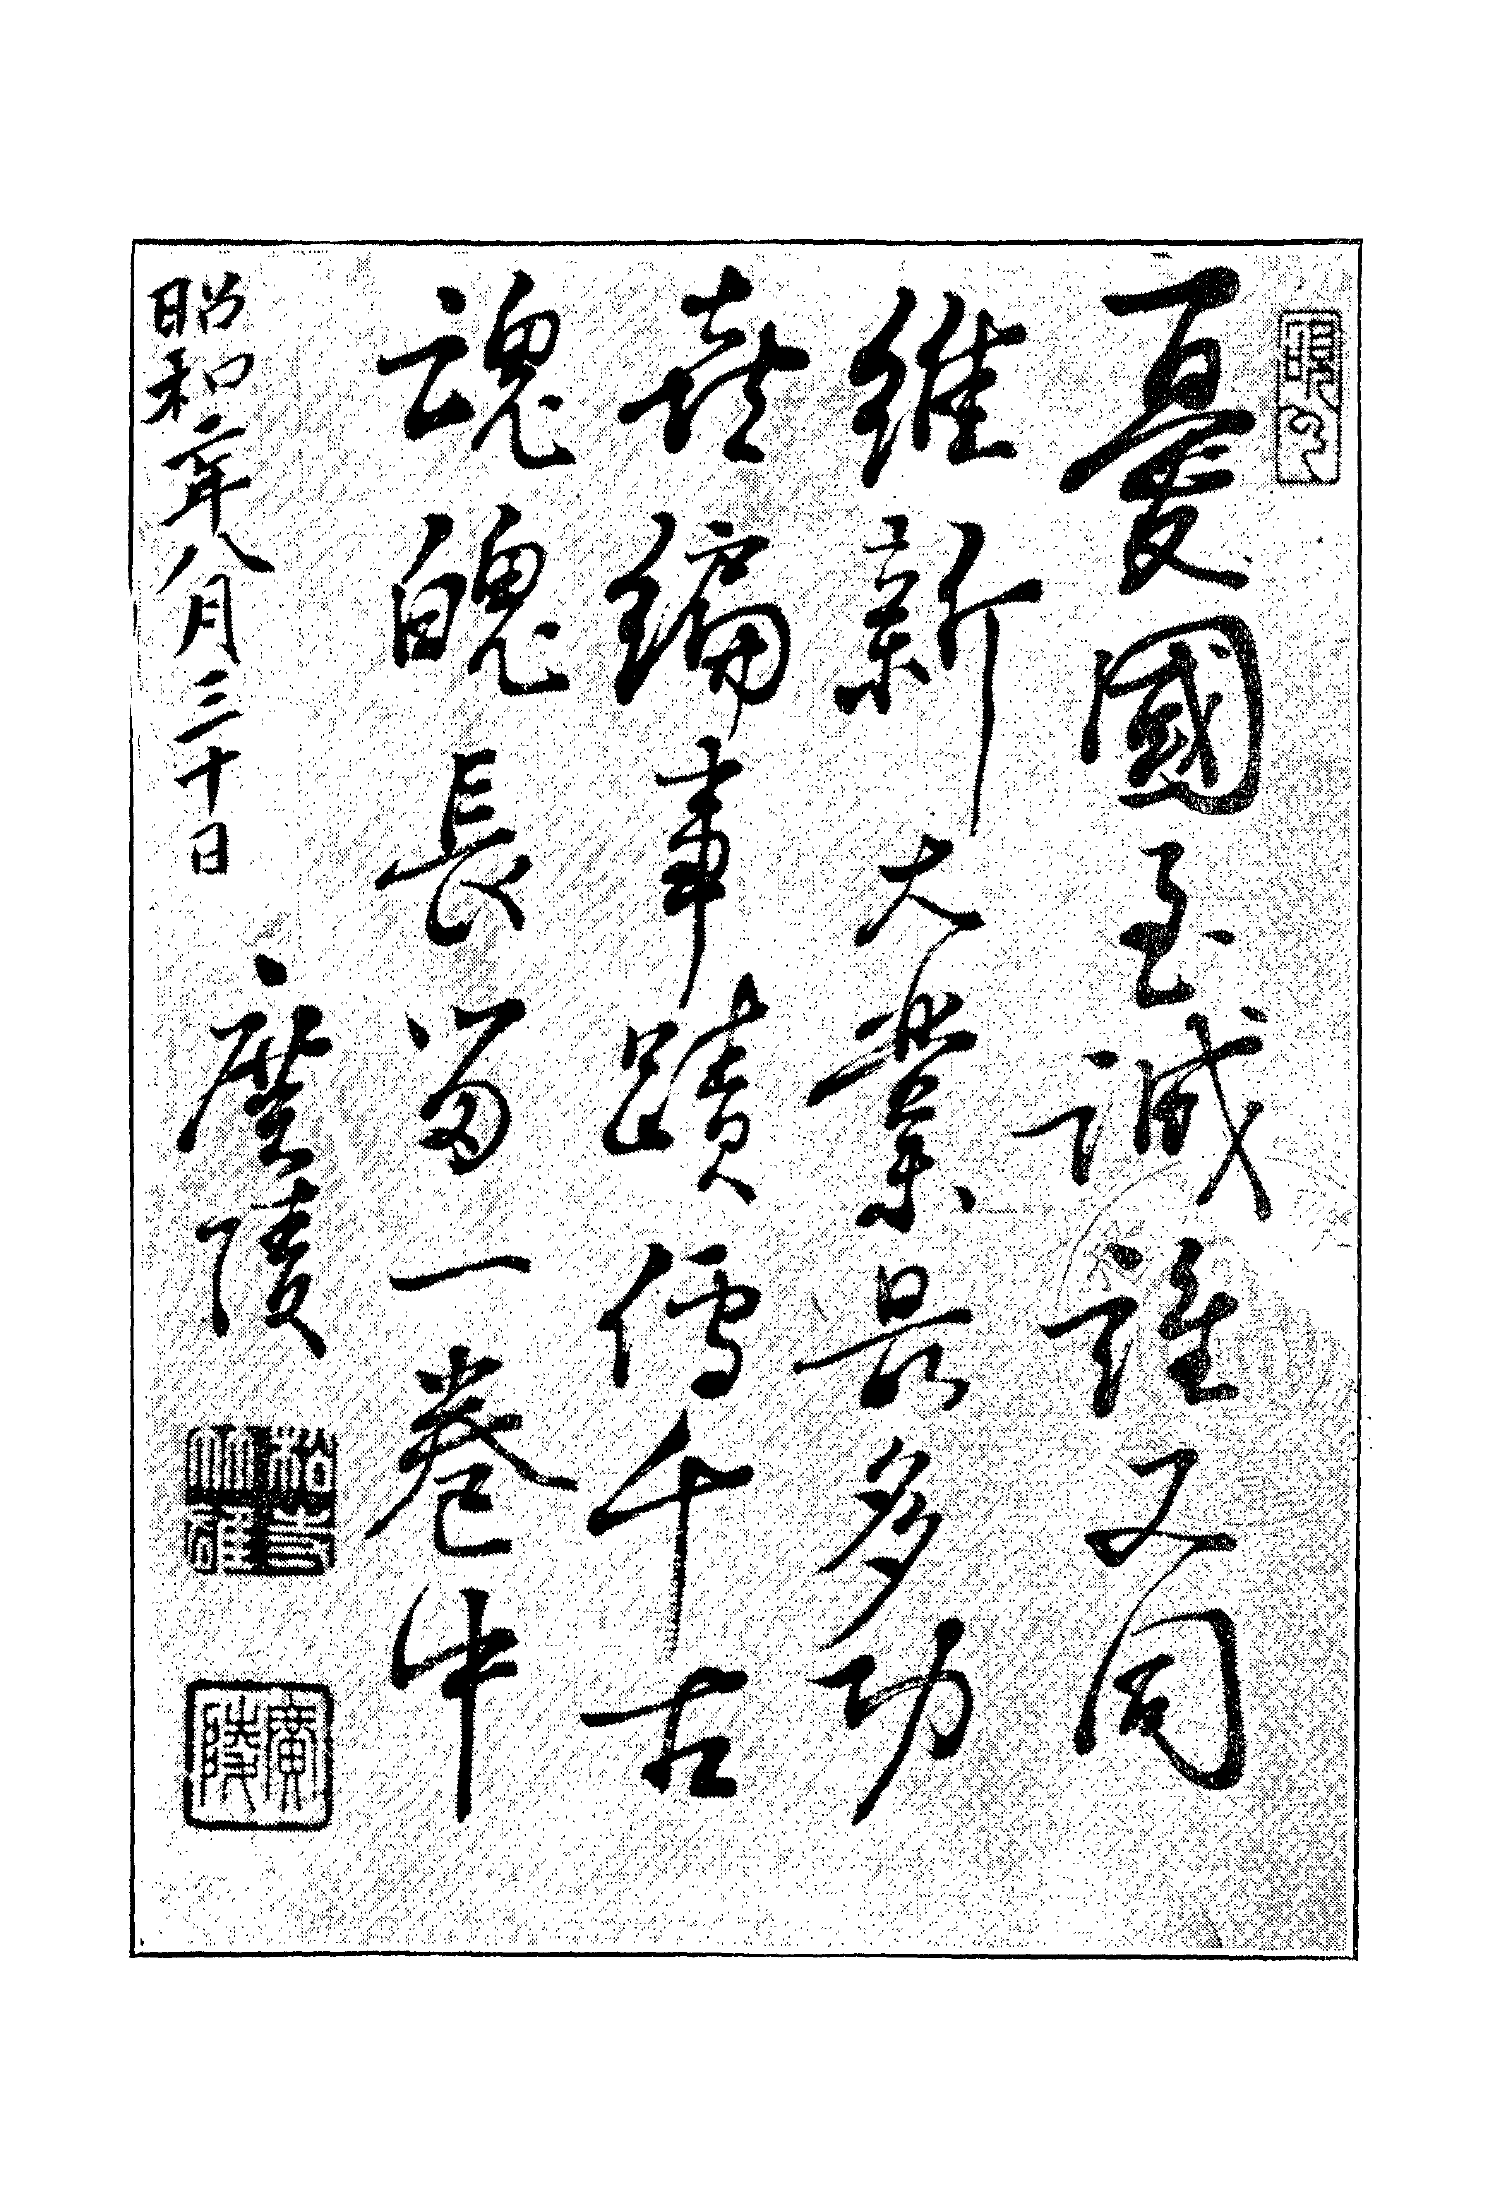 憂國至誠誰又同
維新大業最多功
編事蹟傳千古
魂魄長留一卷中
昭和六年八月三十日
廣陵
廣陵